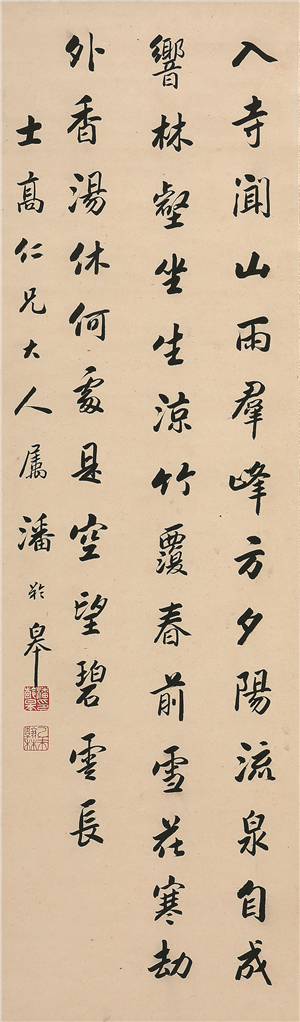 入寺聞山雨羣峰方夕陽流泉自成
響林壑坐生涼竹覆春前雪花寒劫
外香湯休何處是空望碧雲長
士高仁兄大人属潘齡皋